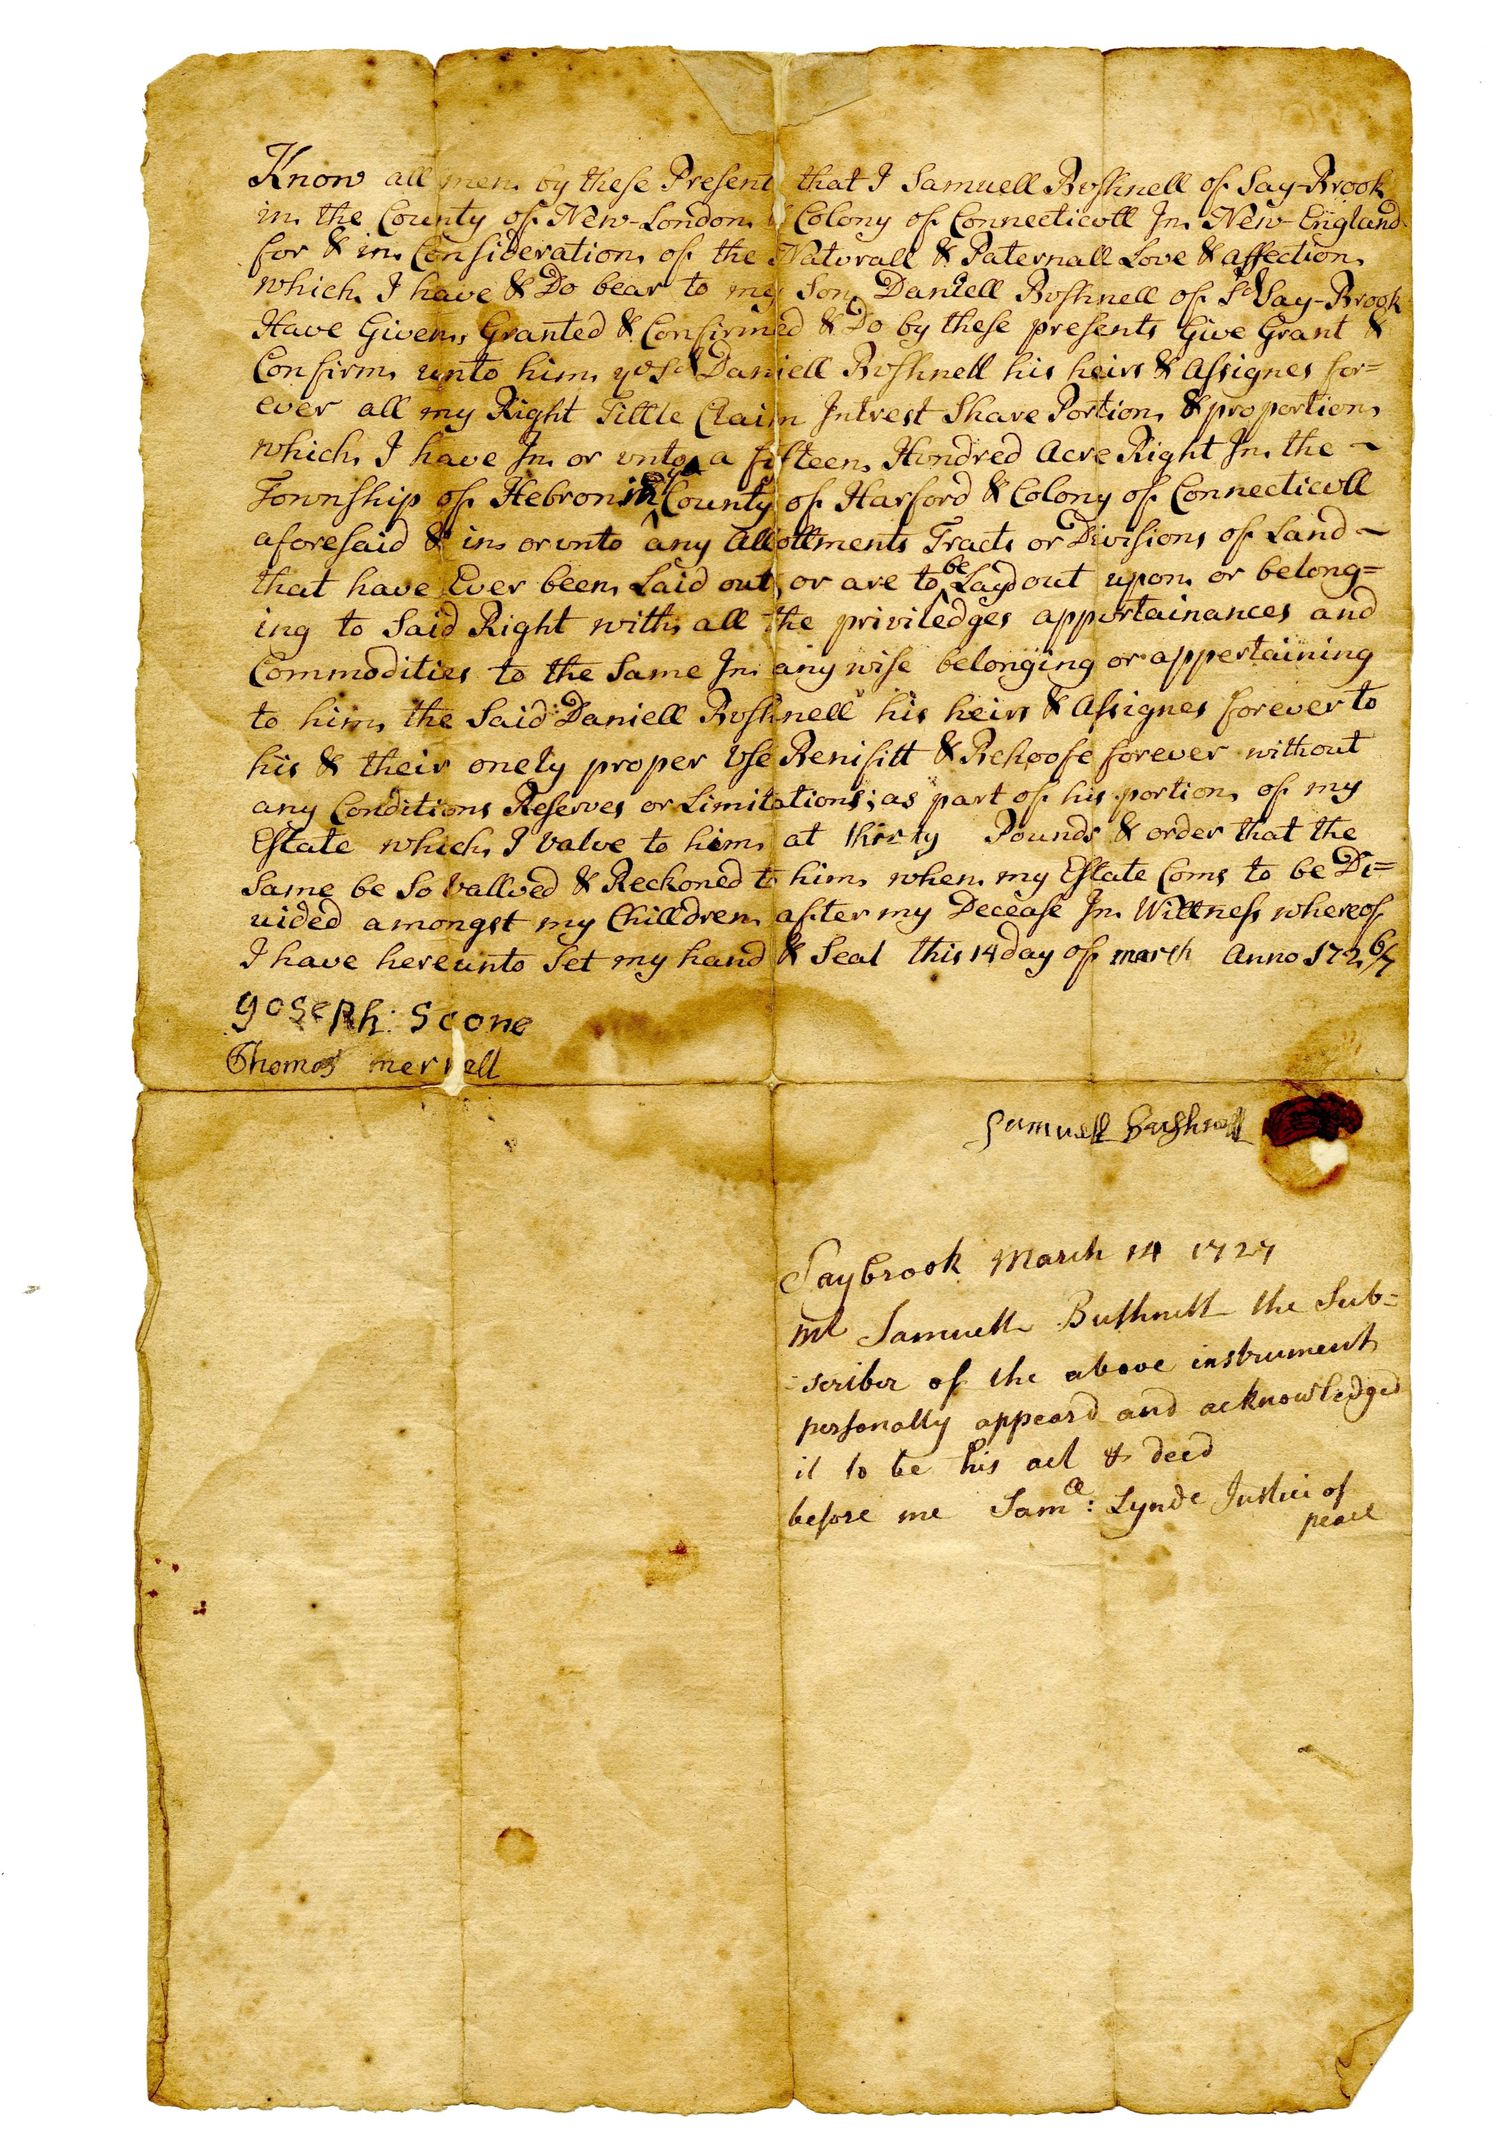 Know all men by these Present that I Samuell Bushnell of Say-Brook
in the County of New-London & Colony of Connecticott In New-England
for & in Consideration of the Naturall & Paternall Love & affection
which I have & Do bear to my Son Daniell Bushnell of Sd Say-Brook
Have Given Granted & Confirmed & Do by these presents Give Grant &
Confirm unto him ye Sd Daniell Bushnell his heirs & Assignes for=
ever all my Right Tittle Claim Intrest Share Portion & proportion
which I have In or unto a fifteen Hundred Acre Right In the ~
Township of Hebron in ye County of Harford & Colony of Connecticott
aforesaid & in or unto any Allottments Tracts or Divisions of Land ~
that have Ever been Laid out, or are to be Layd out upon or belong=
ing to Said Right with all the priviledges appurtainances and
Commodities to the Same In any wise belonging or appertaining
to him the Said Daniell Bushnell his heirs & Assignes forever to
his & their onely proper Use Benifitt & Behoofe forever without
any Conditions Reserves or Limitations; as part of his portion of my
Estate which I Value to him at thirty Pounds & order that the
Same be So Vallued & Reckoned to him when my Estate Coms to be Di=
vided amongst my Chilldren after my Decease In Wittness whereof
I have hereunto Set my hand & Seal this 14 day of march Anno 1726/7
Joseph: Scone
Thomas merrell
Samuell Bushnell
Saybrook March 14 1727
Mr Samuell Bushnell the Sub=
-scriber of the above instrument
personally appeard and acknowledged
it to be his act & deed
before me Saml: Lynde Justice of
peace